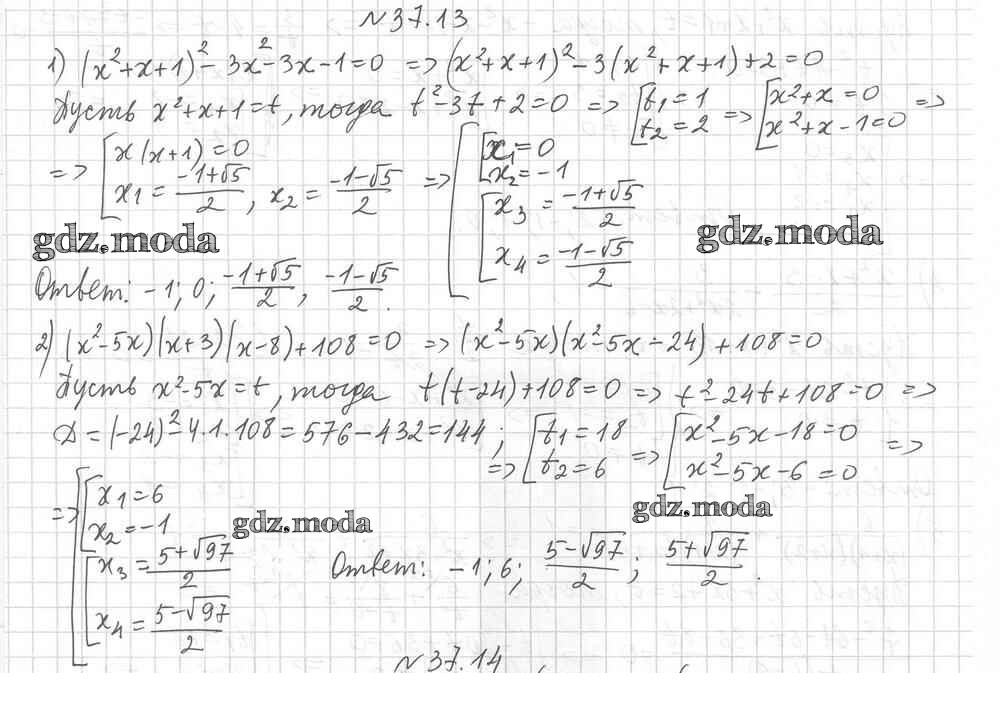 №37.13
1) (x²+x+1)² - 3x² - 3x - 1 = 0 => (x²+x+1)² - 3(x²+x+1) + 2 = 0
Пусть x²+x+1=t, тогда t²-3t+2=0 => [t₁=1 t₂=2 => [x²+x=0 x²+x-1=0 =>
=> [x(x+1)=0 x₁=(-1+√5)/2, x₂=(-1-√5)/2 => [[x₁=0 x₂=-1 [x₃=(-1+√5)/2 x₄=(-1-√5)/2
gdz.moda gdz.moda
Ответ: -1; 0; (-1+√5)/2, (-1-√5)/2.
2) (x²-5x)(x+3)(x-8)+108=0 => (x²-5x)(x²-5x-24)+108=0
Пусть x²-5x=t, тогда t(t-24)+108=0 => t²-24t+108=0 =>
D=(-24)²-4·1·108=576-432=144; => [t₁=18 t₂=6 => [x²-5x-18=0 x²-5x-6=0 =>
=> [[x₁=6 x₂=-1 [x₃=(5+√97)/2 x₄=(5-√97)/2
gdz.moda gdz.moda
Ответ: -1; 6; (5-√97)/2; (5+√97)/2.
№37.14